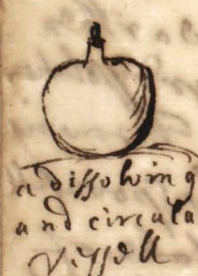 a dissolving
and circula
vessell